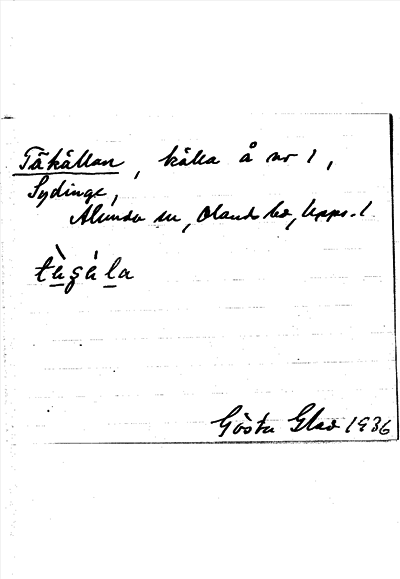 Tåkällan, källa å nr 1,
Sydinge,
Alunda sn, Olands hd, Upps. l
tàgäla
Gösta Glad 1936